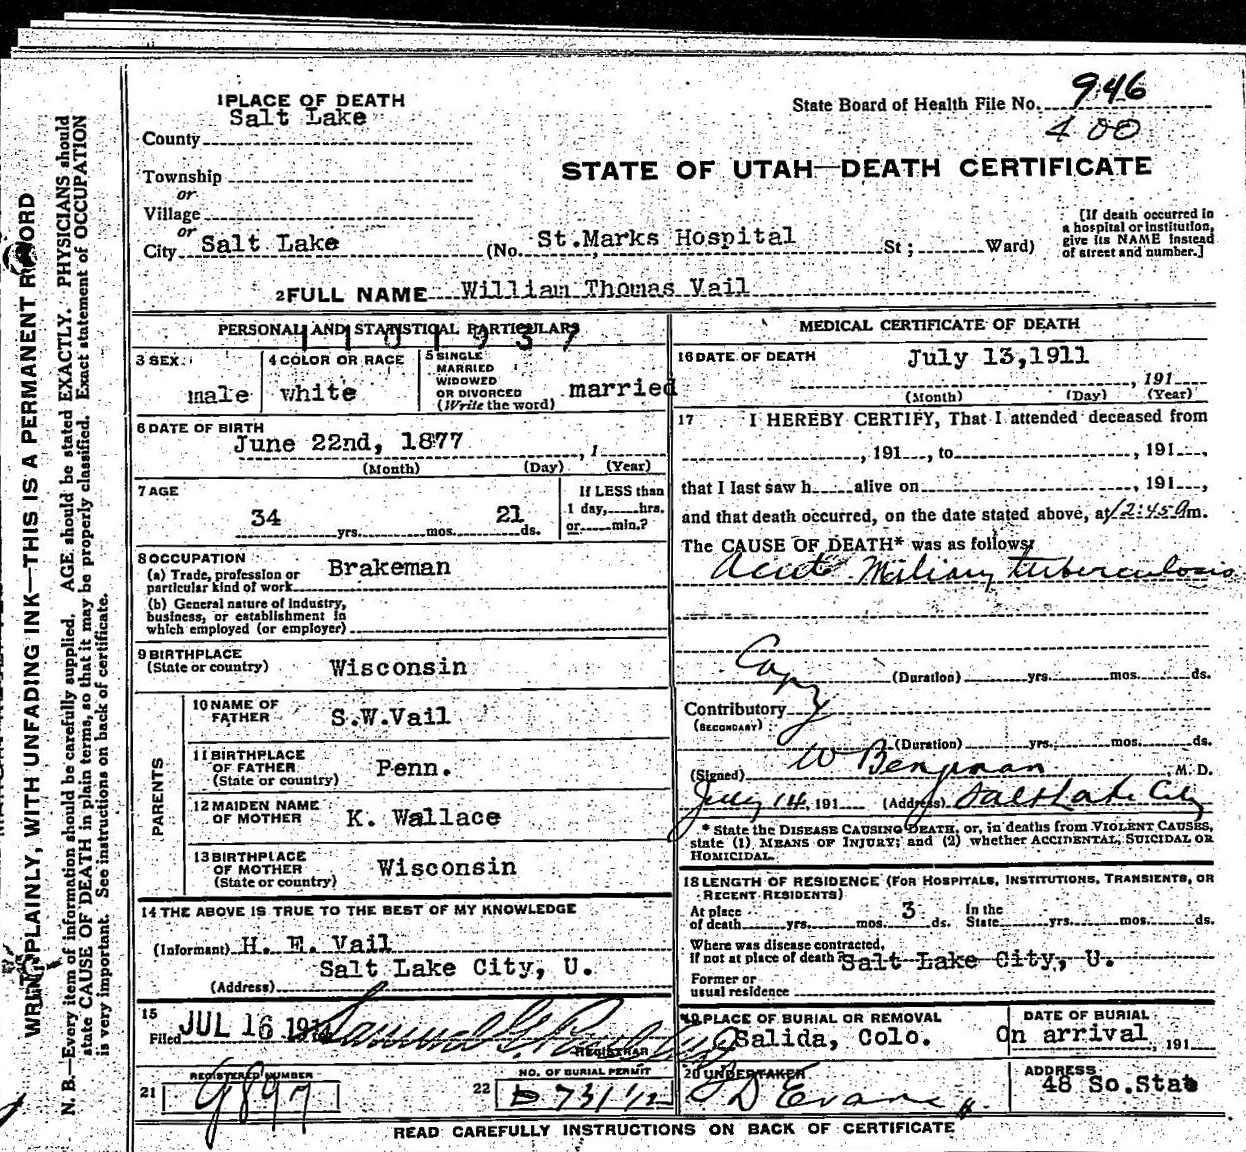 1 PLACE OF DEATH
Salt Lake
County
State Board of Health File No. 946
400
STATE OF UTAH—DEATH CERTIFICATE
Township
or
Village
or
City Salt Lake (No. St.Marks Hospital St; Ward)
[If death occurred in
a hospital or institution,
give its NAME instead
of street and number.]
2 FULL NAME William Thomas Vail
PERSONAL AND STATISTICAL PARTICULARS
3 SEX
male
4 COLOR OR RACE
white
5 SINGLE
MARRIED
WIDOWED
OR DIVORCED
(Write the word)
married
6 DATE OF BIRTH
June 22nd, 1877
, 1
(Month) (Day) (Year)
7 AGE
34 yrs. mos. 21 ds.
If LESS than
1 day, hrs.
or min.?
8 OCCUPATION
(a) Trade, profession or
particular kind of work
Brakeman
(b) General nature of industry,
business, or establishment in
which employed (or employer)
9 BIRTHPLACE
(State or country)
Wisconsin
PARENTS
10 NAME OF
FATHER
S.W.Vail
11 BIRTHPLACE
OF FATHER
(State or country)
Penn.
12 MAIDEN NAME
OF MOTHER
K. Wallace
13 BIRTHPLACE
OF MOTHER
(State or country)
Wisconsin
14 THE ABOVE IS TRUE TO THE BEST OF MY KNOWLEDGE
(Informant) H. E. Vail
Salt Lake City, U.
(Address)
15
Filed JUL 16 191
REGISTRAR
REGISTERED NUMBER
21 9897
NO. OF BURIAL PERMIT
22 D 731 1/2
MEDICAL CERTIFICATE OF DEATH
16 DATE OF DEATH
July 13,1911
, 191
(Month) (Day) (Year)
17 I HEREBY CERTIFY, That I attended deceased from
, 191 , to , 191 ,
that I last saw h alive on , 191 ,
and that death occurred, on the date stated above, at 12:45 a m.
The CAUSE OF DEATH* was as follows:
Acut Miliary tuberculosis
Copy
(Duration) yrs. mos. ds.
Contributory
(SECONDARY)
(Duration) yrs. mos. ds.
(Signed) W , M. D.
July 14, 191 (Address) Salt Lake City
* State the DISEASE CAUSING DEATH, or, in deaths from VIOLENT CAUSES,
state (1) MEANS OF INJURY; and (2) whether ACCIDENTAL, SUICIDAL OR
HOMICIDAL.
18 LENGTH OF RESIDENCE (FOR HOSPITALS, INSTITUTIONS, TRANSIENTS, OR
RECENT RESIDENTS)
At place
of death yrs. mos. 3 ds.
In the
State yrs. mos. ds.
Where was disease contracted,
if not at place of death? Salt Lake City, U.
Former or
usual residence
19 PLACE OF BURIAL OR REMOVAL
Salida, Colo.
DATE OF BURIAL
On arrival
, 191
20 UNDERTAKER
D Evans
ADDRESS
48 So.State
READ CAREFULLY INSTRUCTIONS ON BACK OF CERTIFICATE
WRITE PLAINLY, WITH UNFADING INK—THIS IS A PERMANENT RECORD
N. B.—Every item of information should be carefully supplied. AGE should be stated EXACTLY. PHYSICIANS should
state CAUSE OF DEATH in plain terms, so that it may be properly classified. Exact statement of OCCUPATION
is very important. See instructions on back of certificate.